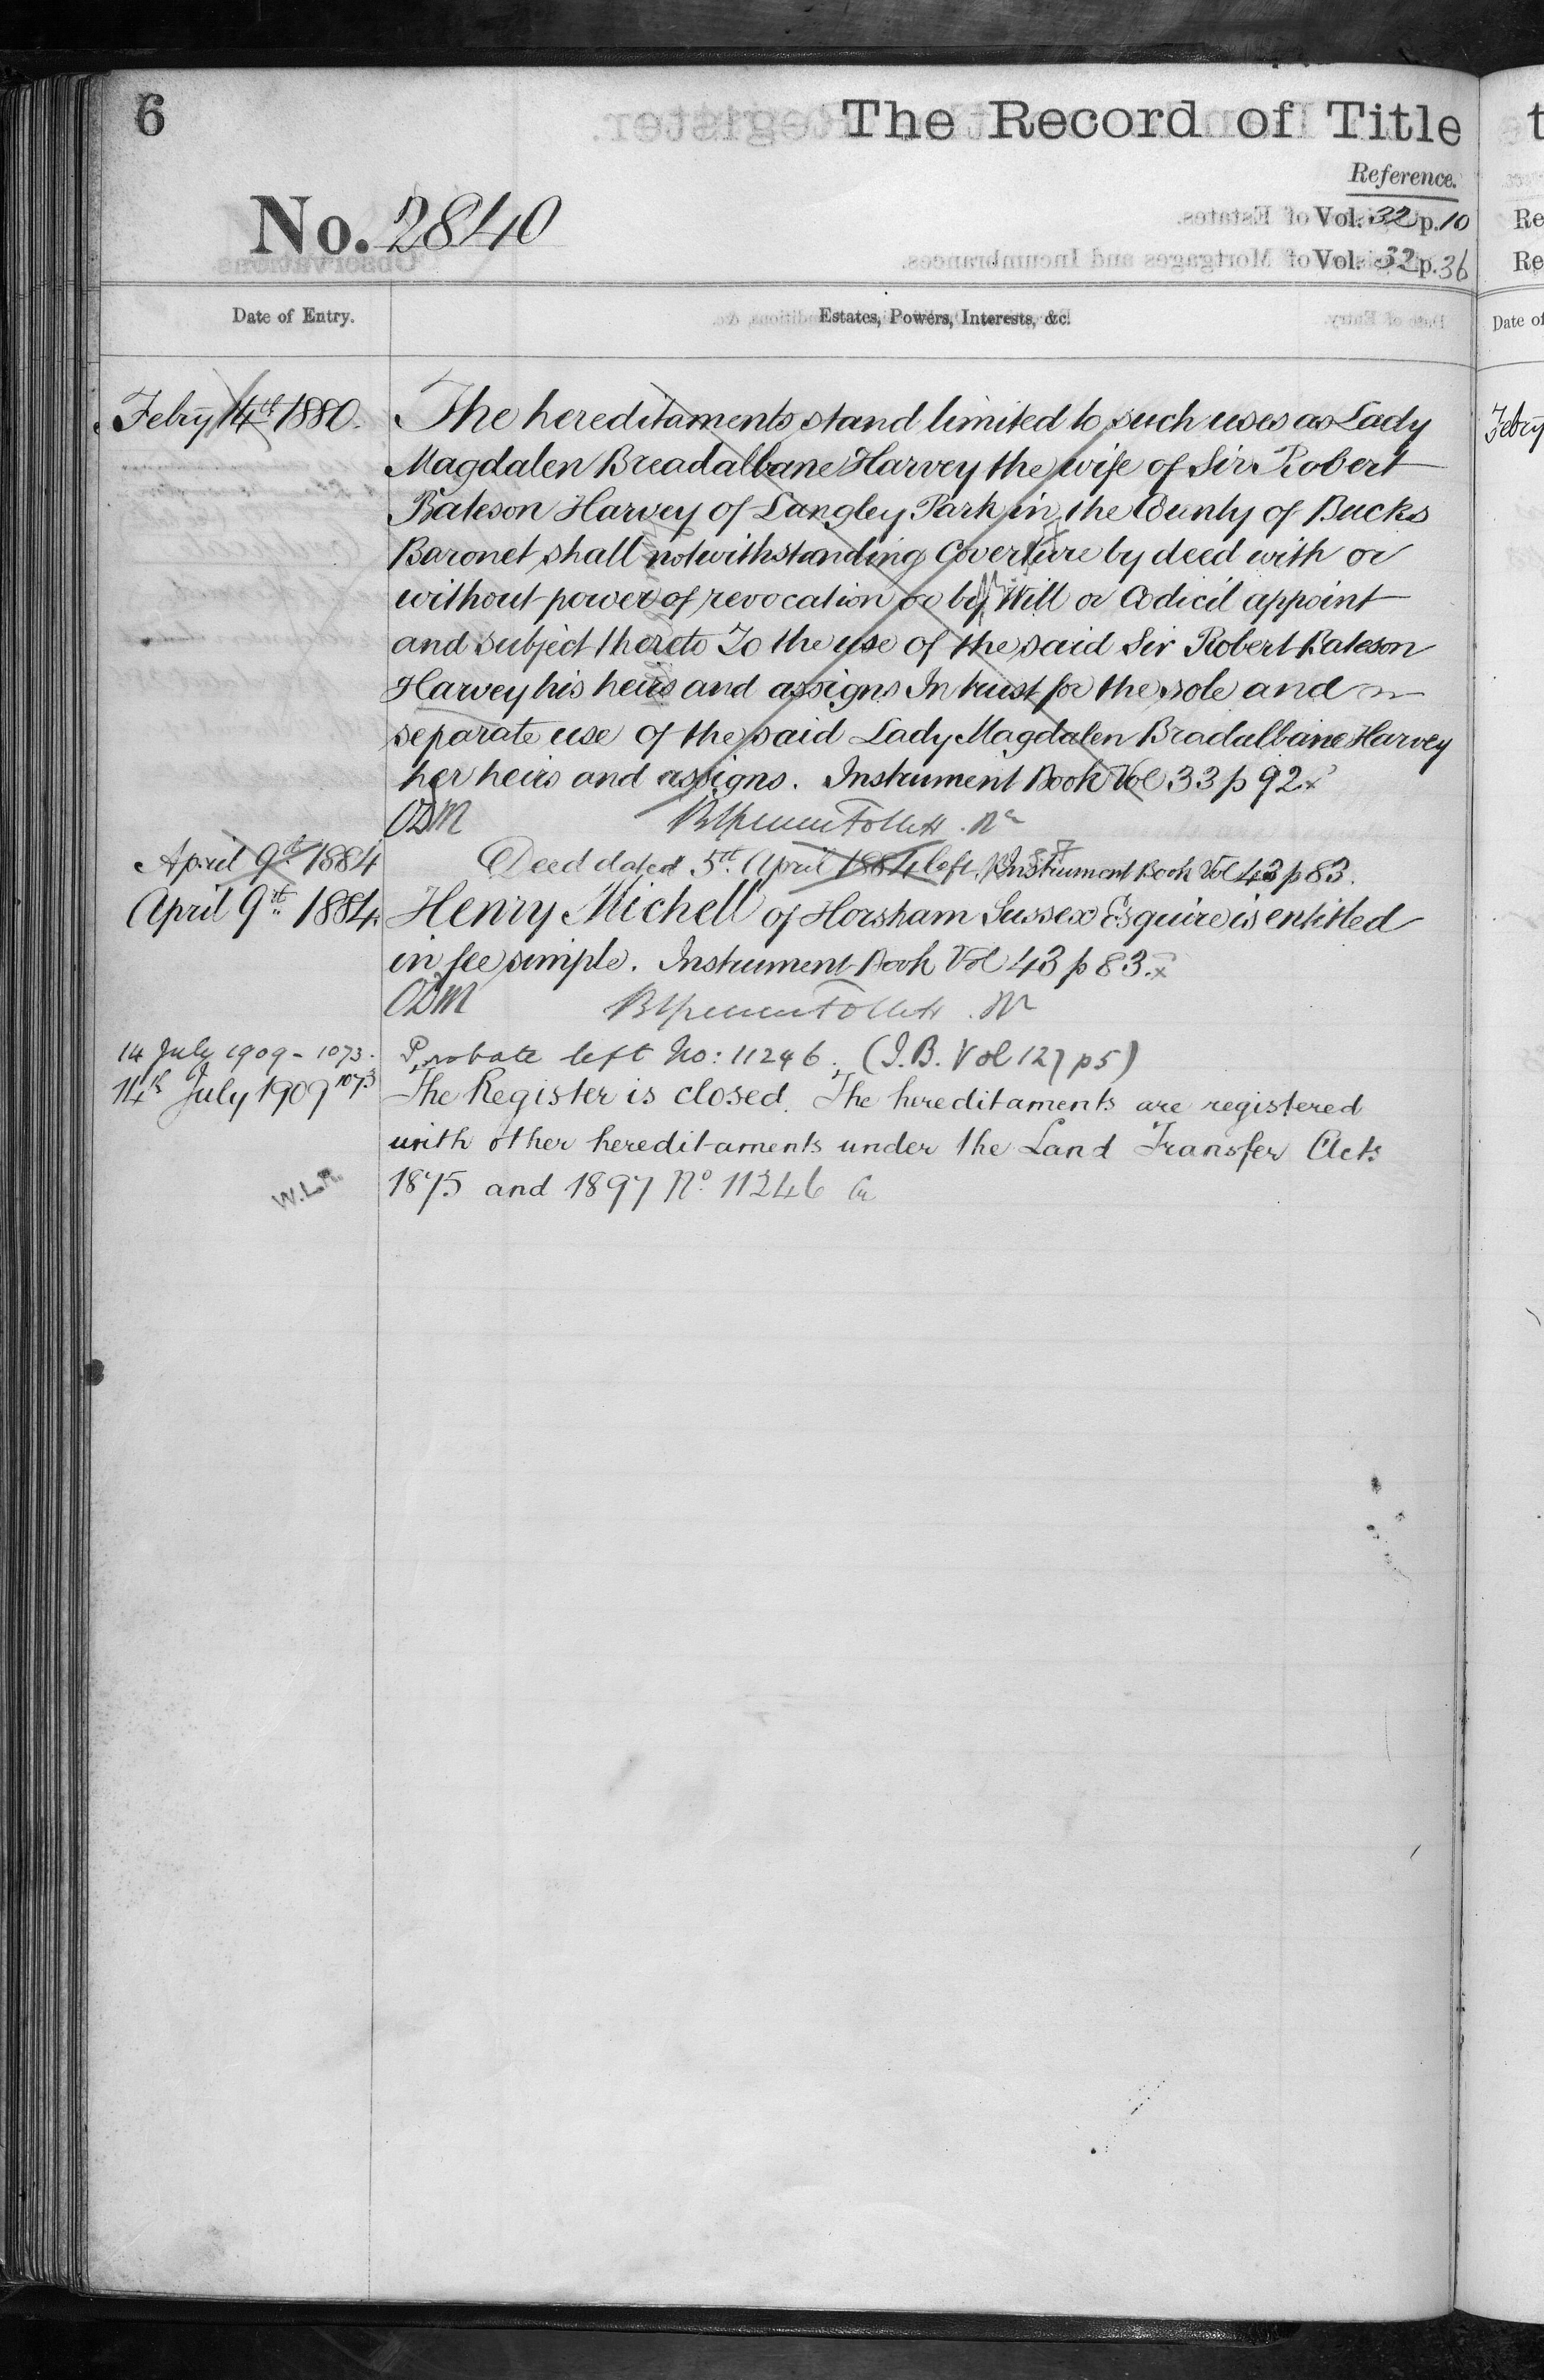 6
The Record of Title
Reference.
No. 2840
Vol. 32 p. 10
Vol. 32 p. 36
Date of Entry.
Estates, Powers, Interests, &c.
Febry 14th 1880. The hereditaments stand limited to such uses as Lady
Magdalen Breadalbane Harvey the wife of Sir Robert
Bateson Harvey of Langley Park in the County of Bucks
Baronet shall notwithstanding Coverture by deed with or
without power of revocation or by Will or Codicil appoint
and subject thereto To the use of the said Sir Robert Bateson
Harvey his heirs and assigns In trust for the sole and
separate use of the said Lady Magdalen Bradalbane Harvey
her heirs and assigns. Instrument Book Vol 33 p 92
ODM
April 9th 1884 Deed dated 5th April 1884 left. Instrument Book Vol 43 p 83.
April 9th 1884. Henry Michell of Horsham Sussex Esquire is entitled
in fee simple. Instrument Book Vol 43 p 83.
ODM
14 July 1909 - 1073. Probate left No: 11246. (I.B. Vol 127 p 5)
14th July 1909 1073 The Register is closed. The hereditaments are registered
with other hereditaments under the Land Transfer Acts
1875 and 1897 No 11246
W.L.R.
t
Re
Re
Date of
Febry